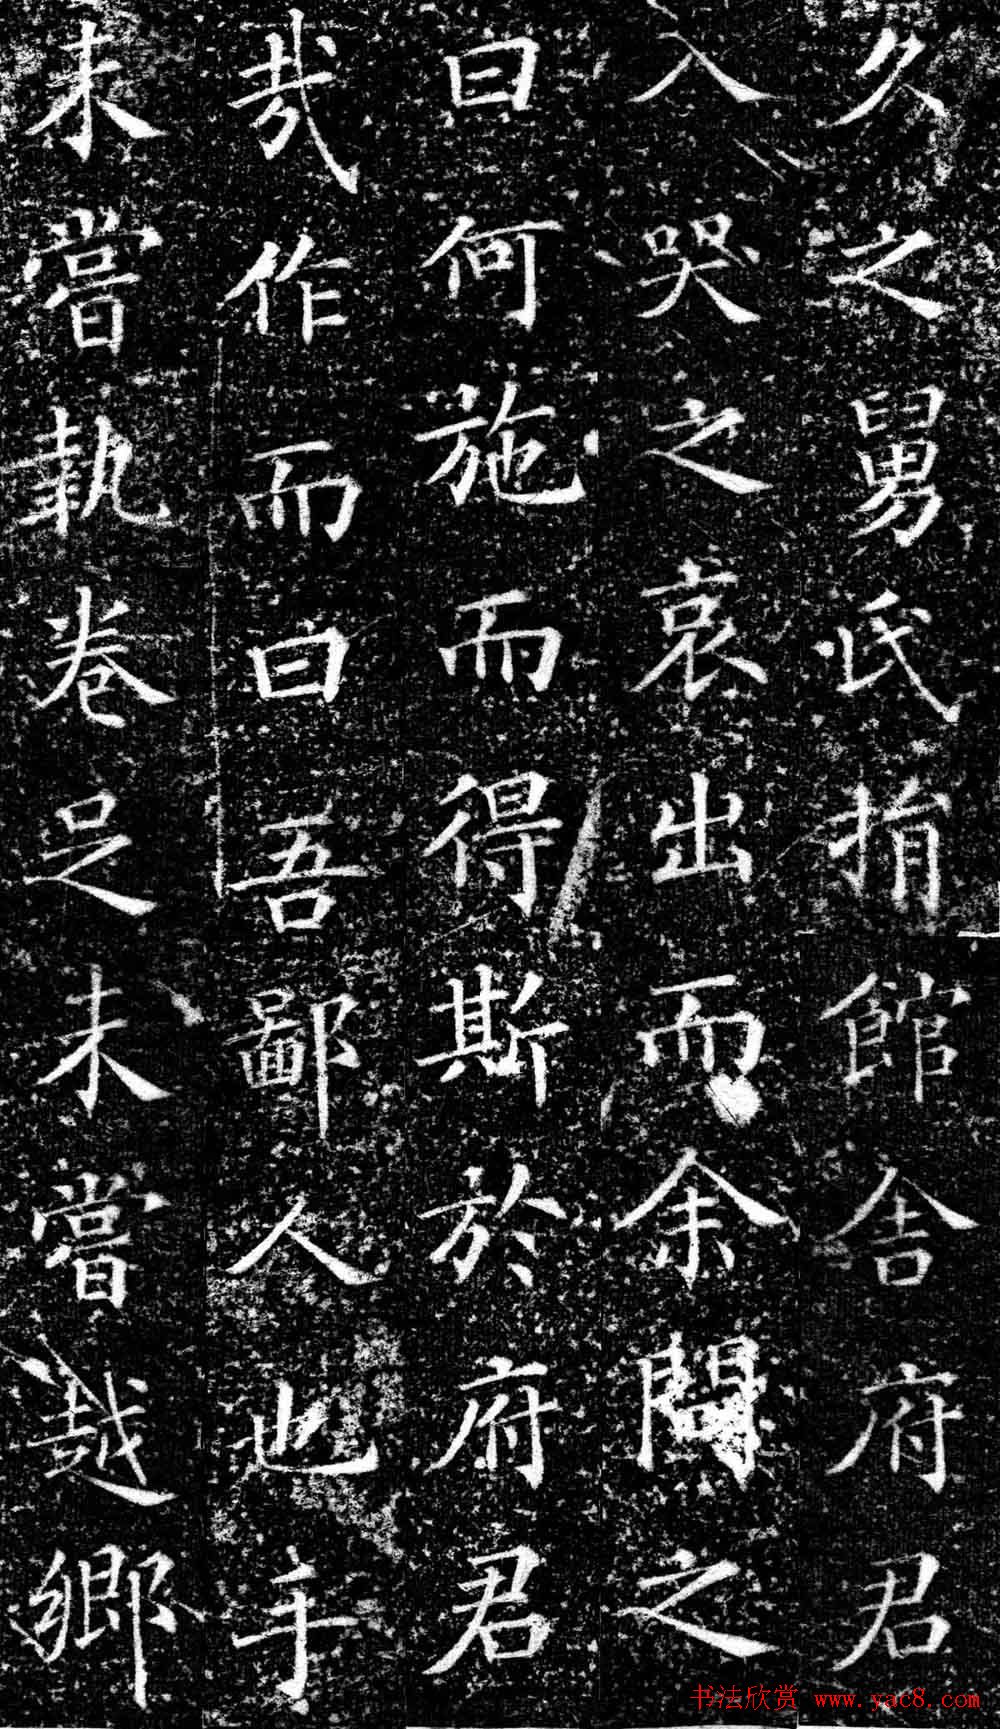 久之舅氏捐館舍府君
入哭之哀出而余問之
曰何施而得斯於府君
哉作而曰吾鄙人也手
未嘗執卷足未嘗越鄉
书法欣赏 www.yac8.com